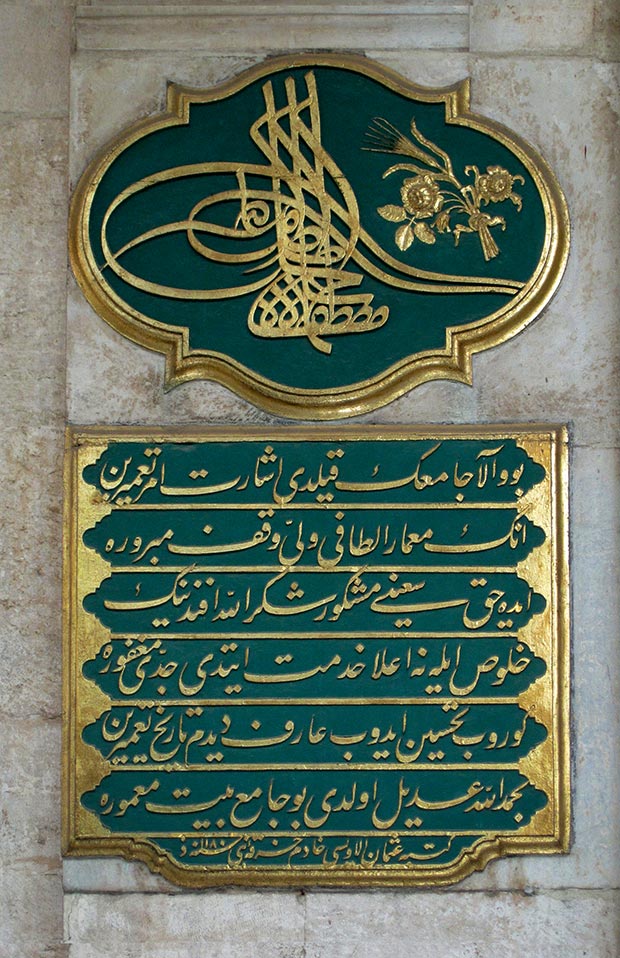 بو والا جامعك قيلدى اشارت امر تعميرين
انك معمار الطافى ولىّ وقف مبروره
ايده حق سعينى مشكور شكر الله افندينك
خلوص ايله نه اعلا خدمت ايتدى جدى مغفوره
كوروب تحسين ايدوب عارف ديدم تاريخ تعميرين
بحمد الله عديل اولدى بو جامع بيت معموره
كتبه عثمان الاويسى خادم